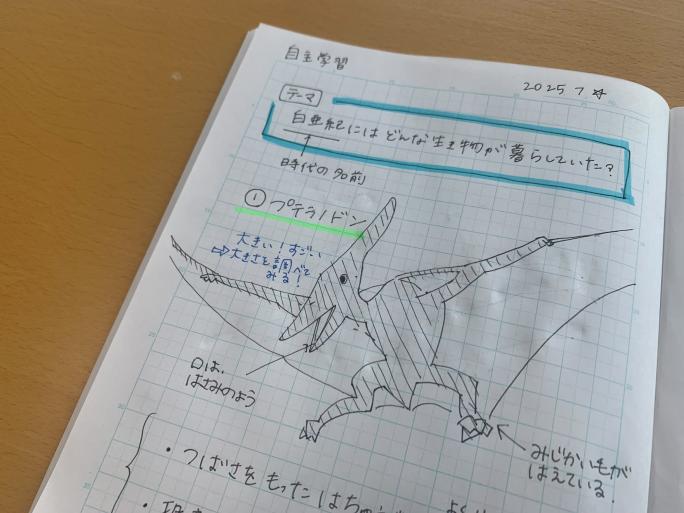 自主学習
2025 7 ☆
テーマ
白亜紀にはどんな生き物が暮らしていた?
時代の名前
① プテラノドン
大きい!すごい
⇨大きさを調べて
みる!
口は、
はさみのよう
みじかい毛が
はえている。
・つばさをもったはちゅう